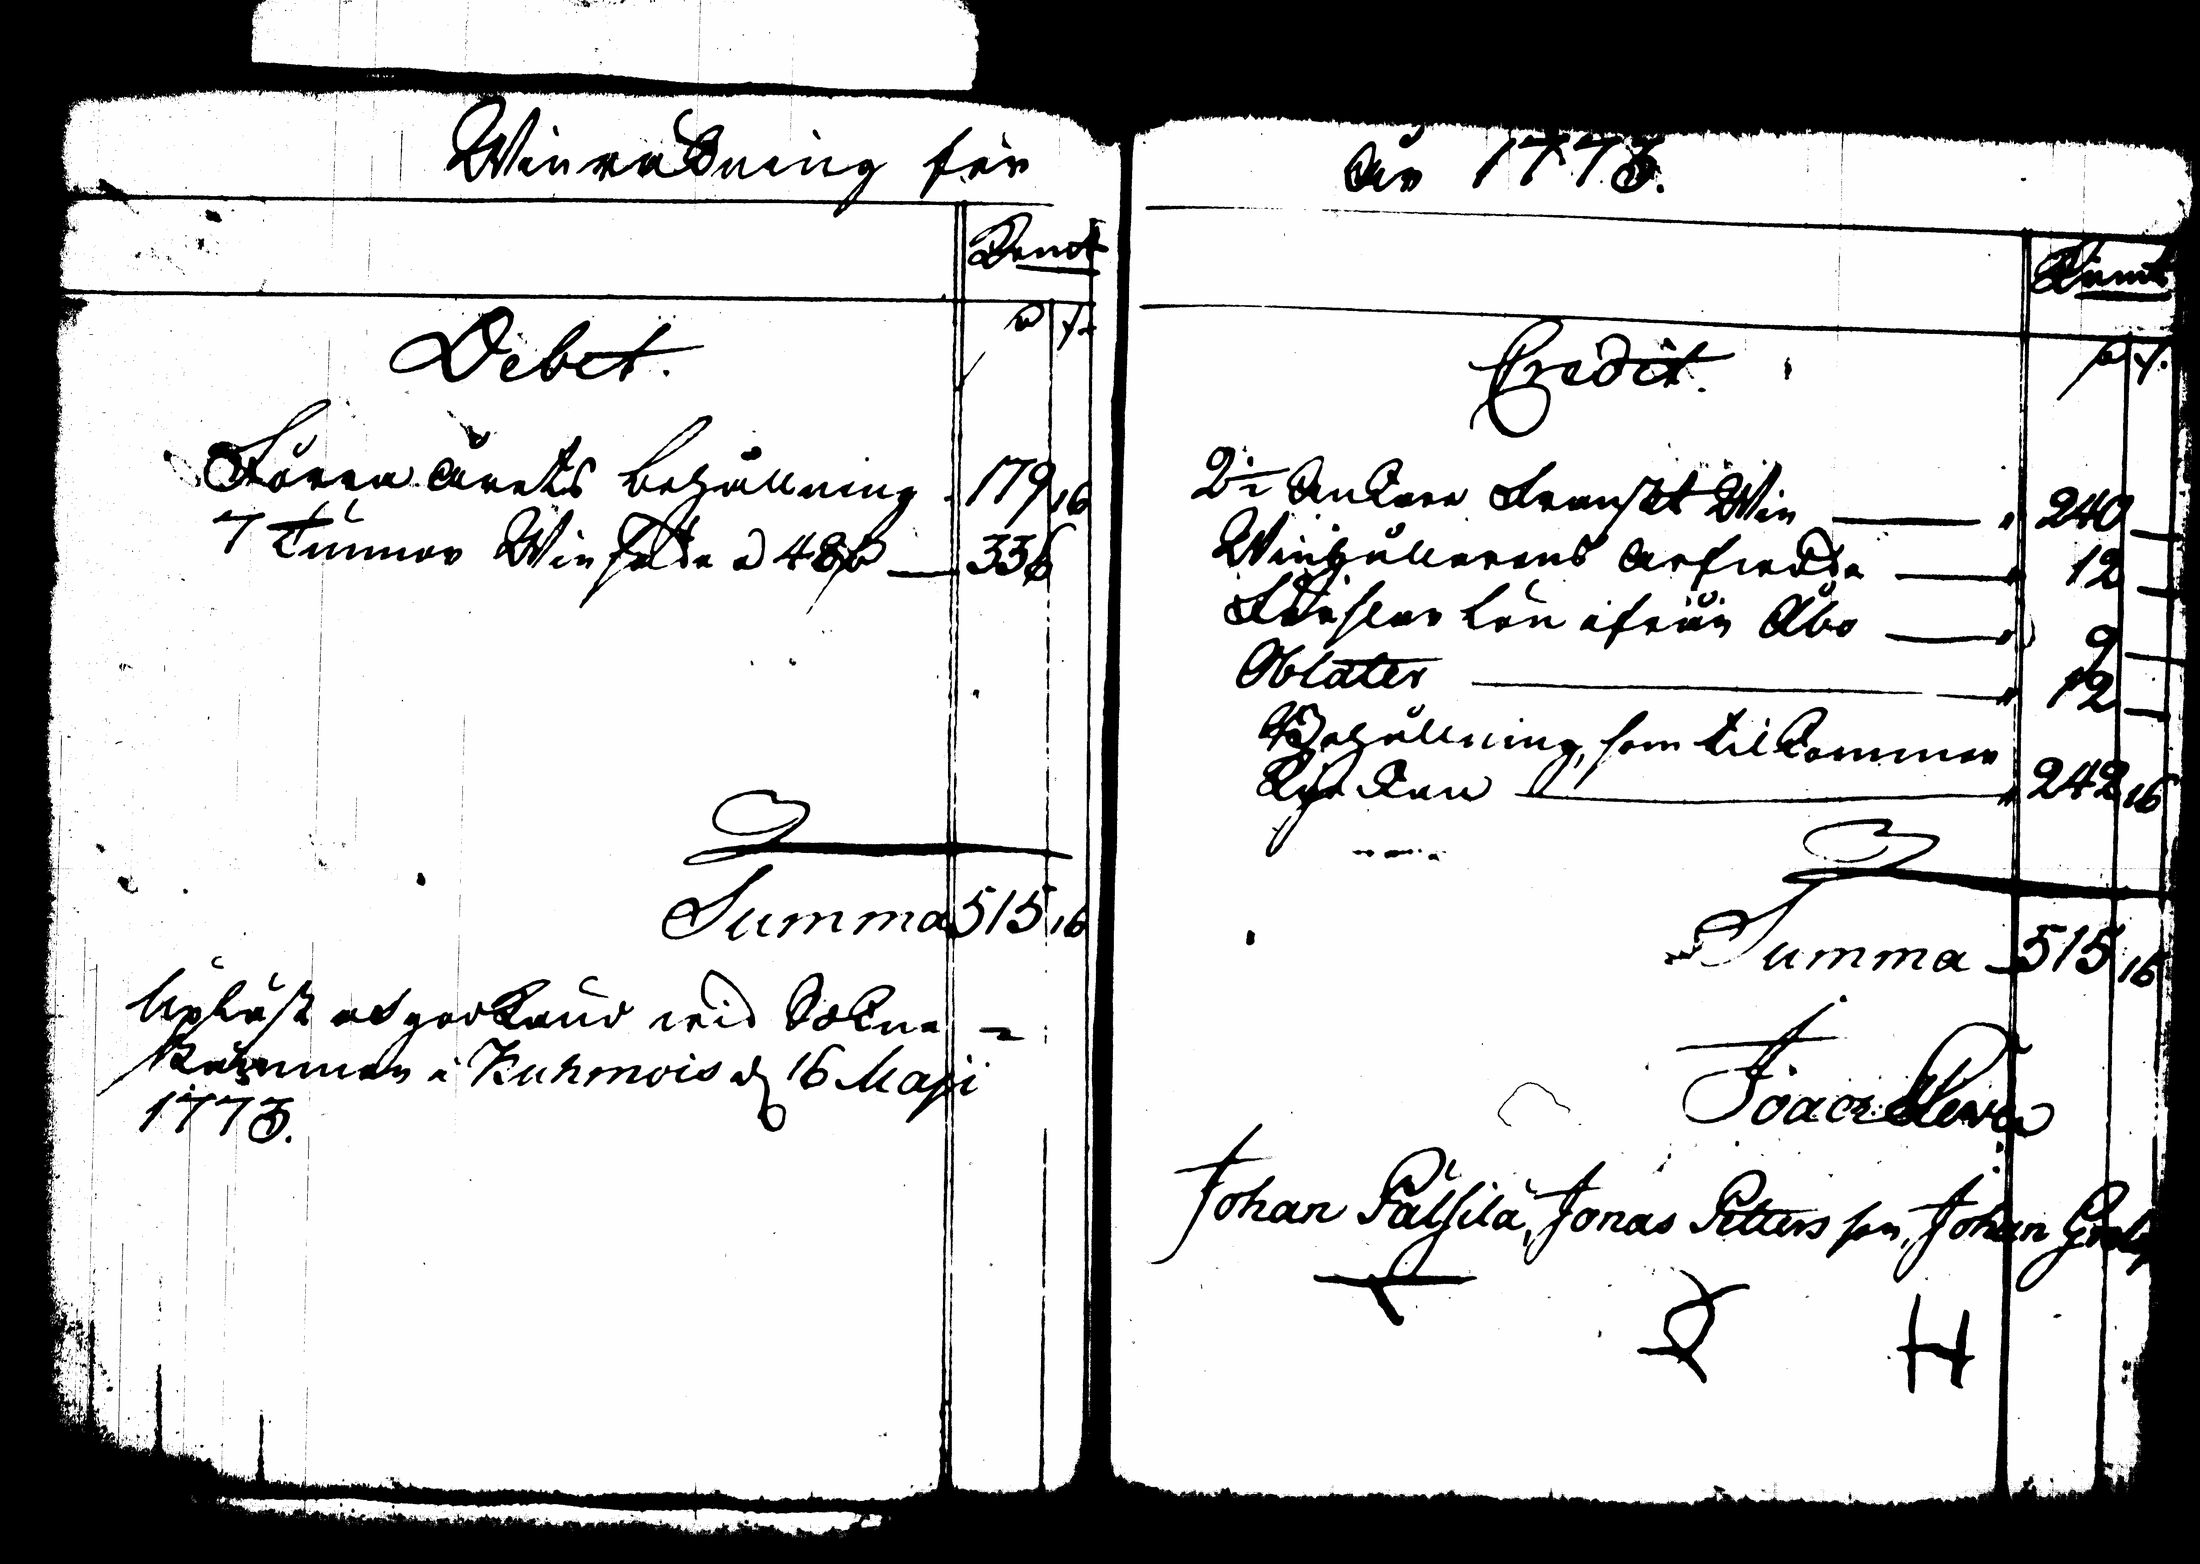 Winräkning för
Kmt
Debet.
Förra årets behållning 179 16
7 Tunnor Winsäde a 48 336
Summa 515 16
Upläst och godkänd wid Sokne=
stämman i Kuhmois d 16 Maji
1773.
År 1773.
Kmt
Credit.
2 Ankare Franskt Win 240
Winhållarens arfwode 12
Förslor lön ifrån Åbo 9
Oblater 12
Behållning, som tilkommer
Kyrkan 242 16
Summa 515 16
Johan Pälsilä, Jonas Petters son, Johan
H